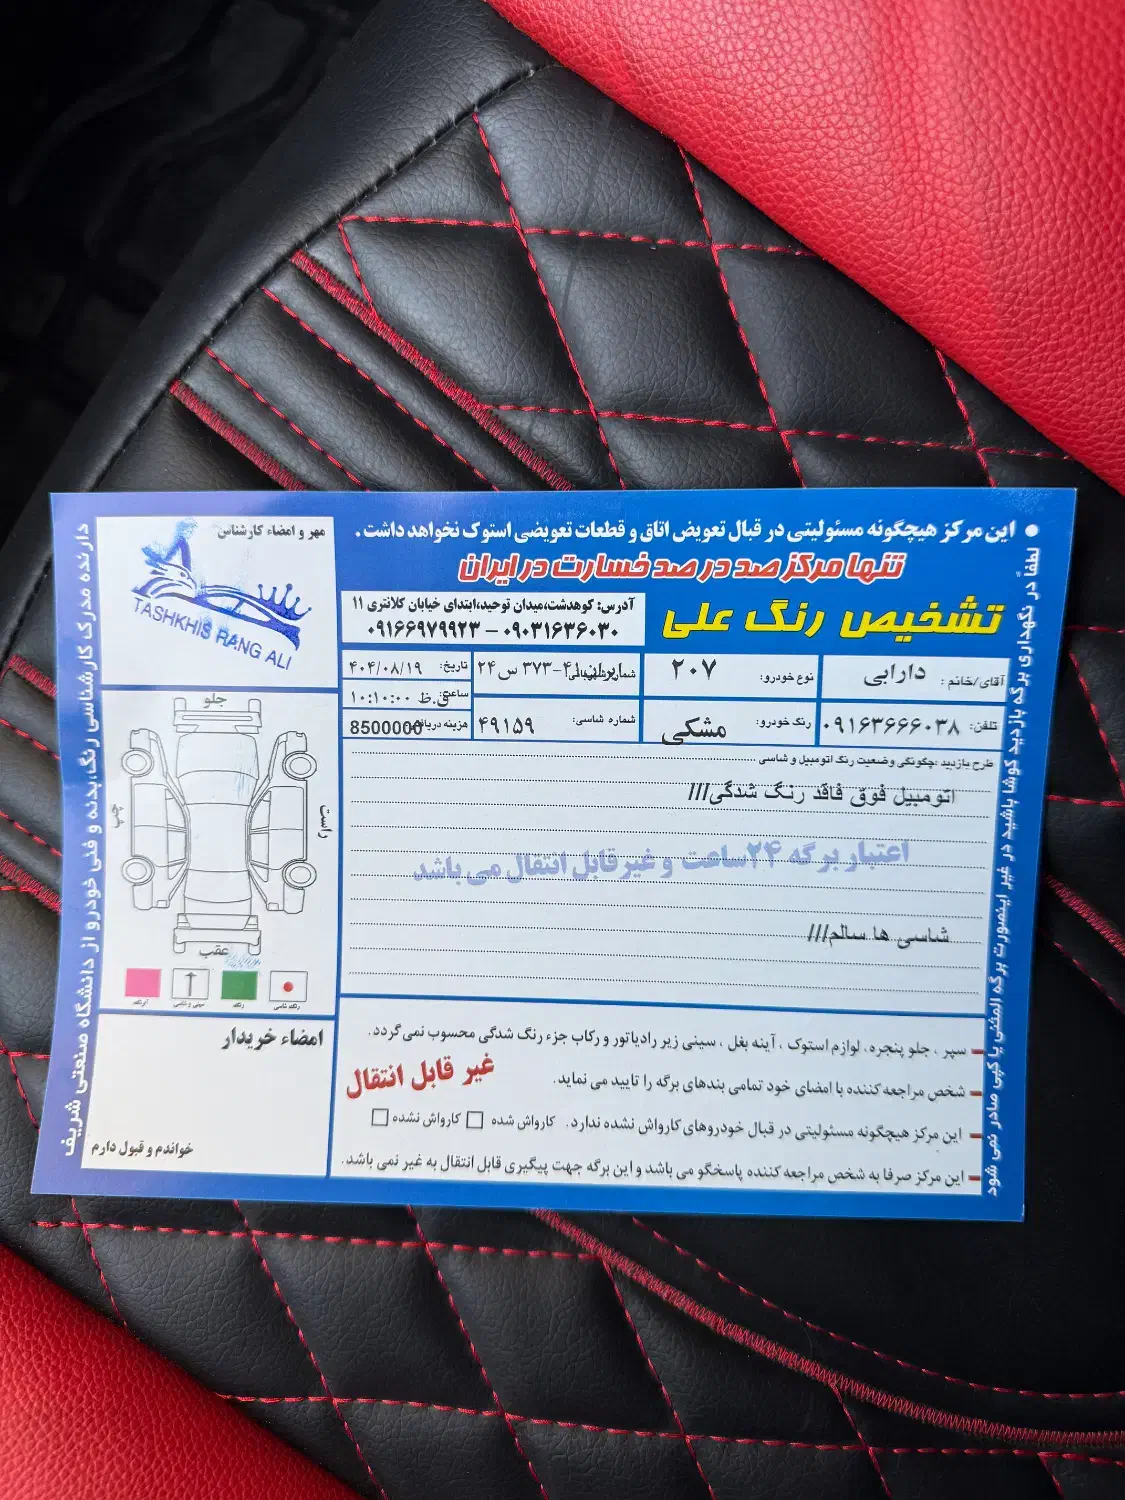 ● این مرکز هیچگونه مسئولیتی در قبال تعویض اتاق و قطعات تعویضی استوک نخواهد داشت.
تنها مرکز صد در صد خسارت در ایران
تشخیص رنگ علی
آدرس: کوهدشت،میدان توحید،ابتدای خیابان کلانتری ۱۱
۰۹۰۳۱۶۳۶۰۳۰ – ۰۹۱۶۶۹۷۹۹۲۳
مهر و امضاء کارشناس
TASHKHIS RANG ALI
آقای/خانم : دارابی
نوع خودرو: ۲۰۷
ایران ۴۱-۳۷۳ س ۲۴
تاریخ: ۴۰۴/۰۸/۱۹
ساعت: ۱۰:۱۰:۰۰ ق.ظ
تلفن: ۰۹۱۶۳۶۶۶۰۳۸
رنگ خودرو: مشکی
شماره شاسی: ۴۹۱۵۹
هزینه دریافتی 8500000
طرح بازدید :چگونگی وضعیت رنگ اتومبیل و شاسی
اتومبیل فوق فاقد رنگ شدگی///
اعتبار برگه ۲۴ساعت و غیرقابل انتقال می باشد
شاسی ها سالم///
جلو
چپ
راست
عقب
امضاء خریدار
خواندم و قبول دارم
– سپر ، جلو پنجره، لوازم استوک ، آینه بغل ، سینی زیر رادیاتور و رکاب جزء رنگ شدگی محسوب نمی گردد.
– شخص مراجعه کننده با امضای خود تمامی بندهای برگه را تایید می نماید.
غیر قابل انتقال
– این مرکز هیچگونه مسئولیتی در قبال خودروهای کارواش نشده ندارد. کارواش شده □ کارواش نشده □
– این مرکز صرفا به شخص مراجعه کننده پاسخگو می باشد و این برگه جهت پیگیری قابل انتقال به غیر نمی باشد.
دارنده مدرک کارشناسی رنگ،بدنه و فنی خودرو از دانشگاه صنعتی شریف
لطفاً در نگهداری برگه بازدید کوشا باشید در غیر اینصورت برگه المثنی یا کپی صادر نمی شود